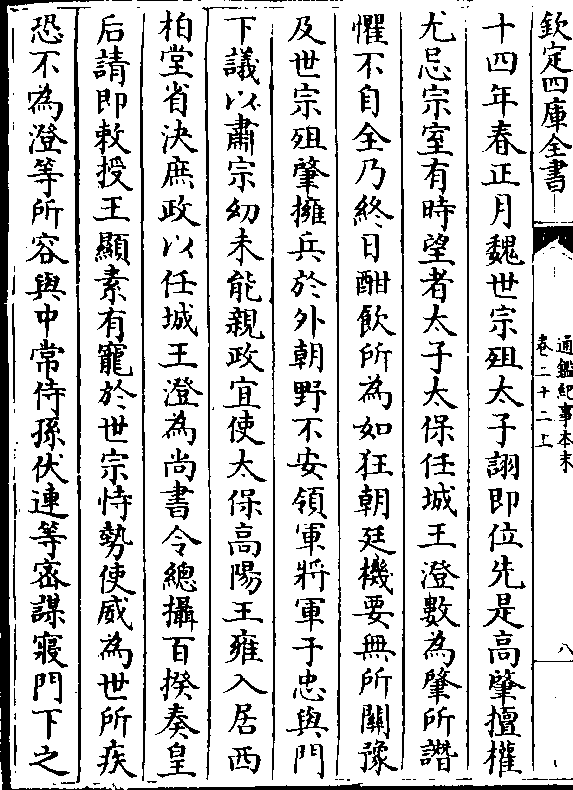 欽定四庫全書
通鑑紀事本末
卷二十二上
八
十四年春正月魏世宗殂太子詡即位先是高肇擅權
尤忌宗室有時望者太子太保任城王澄數為肇所譖
懼不自全乃終日酣飲所為如狂朝廷機要無所關豫
及世宗殂肇擁兵於外朝野不安領軍將軍于忠與門
下議以肅宗幼未能親政宜使太保高陽王雍入居西
柏堂省決庶政以任城王澄為尚書令總攝百揆奏皇
后請即敕授王顯素有寵於世宗恃勢使威為世所疾
恐不為澄等所容與中常侍孫伏連等宻謀寢門下之